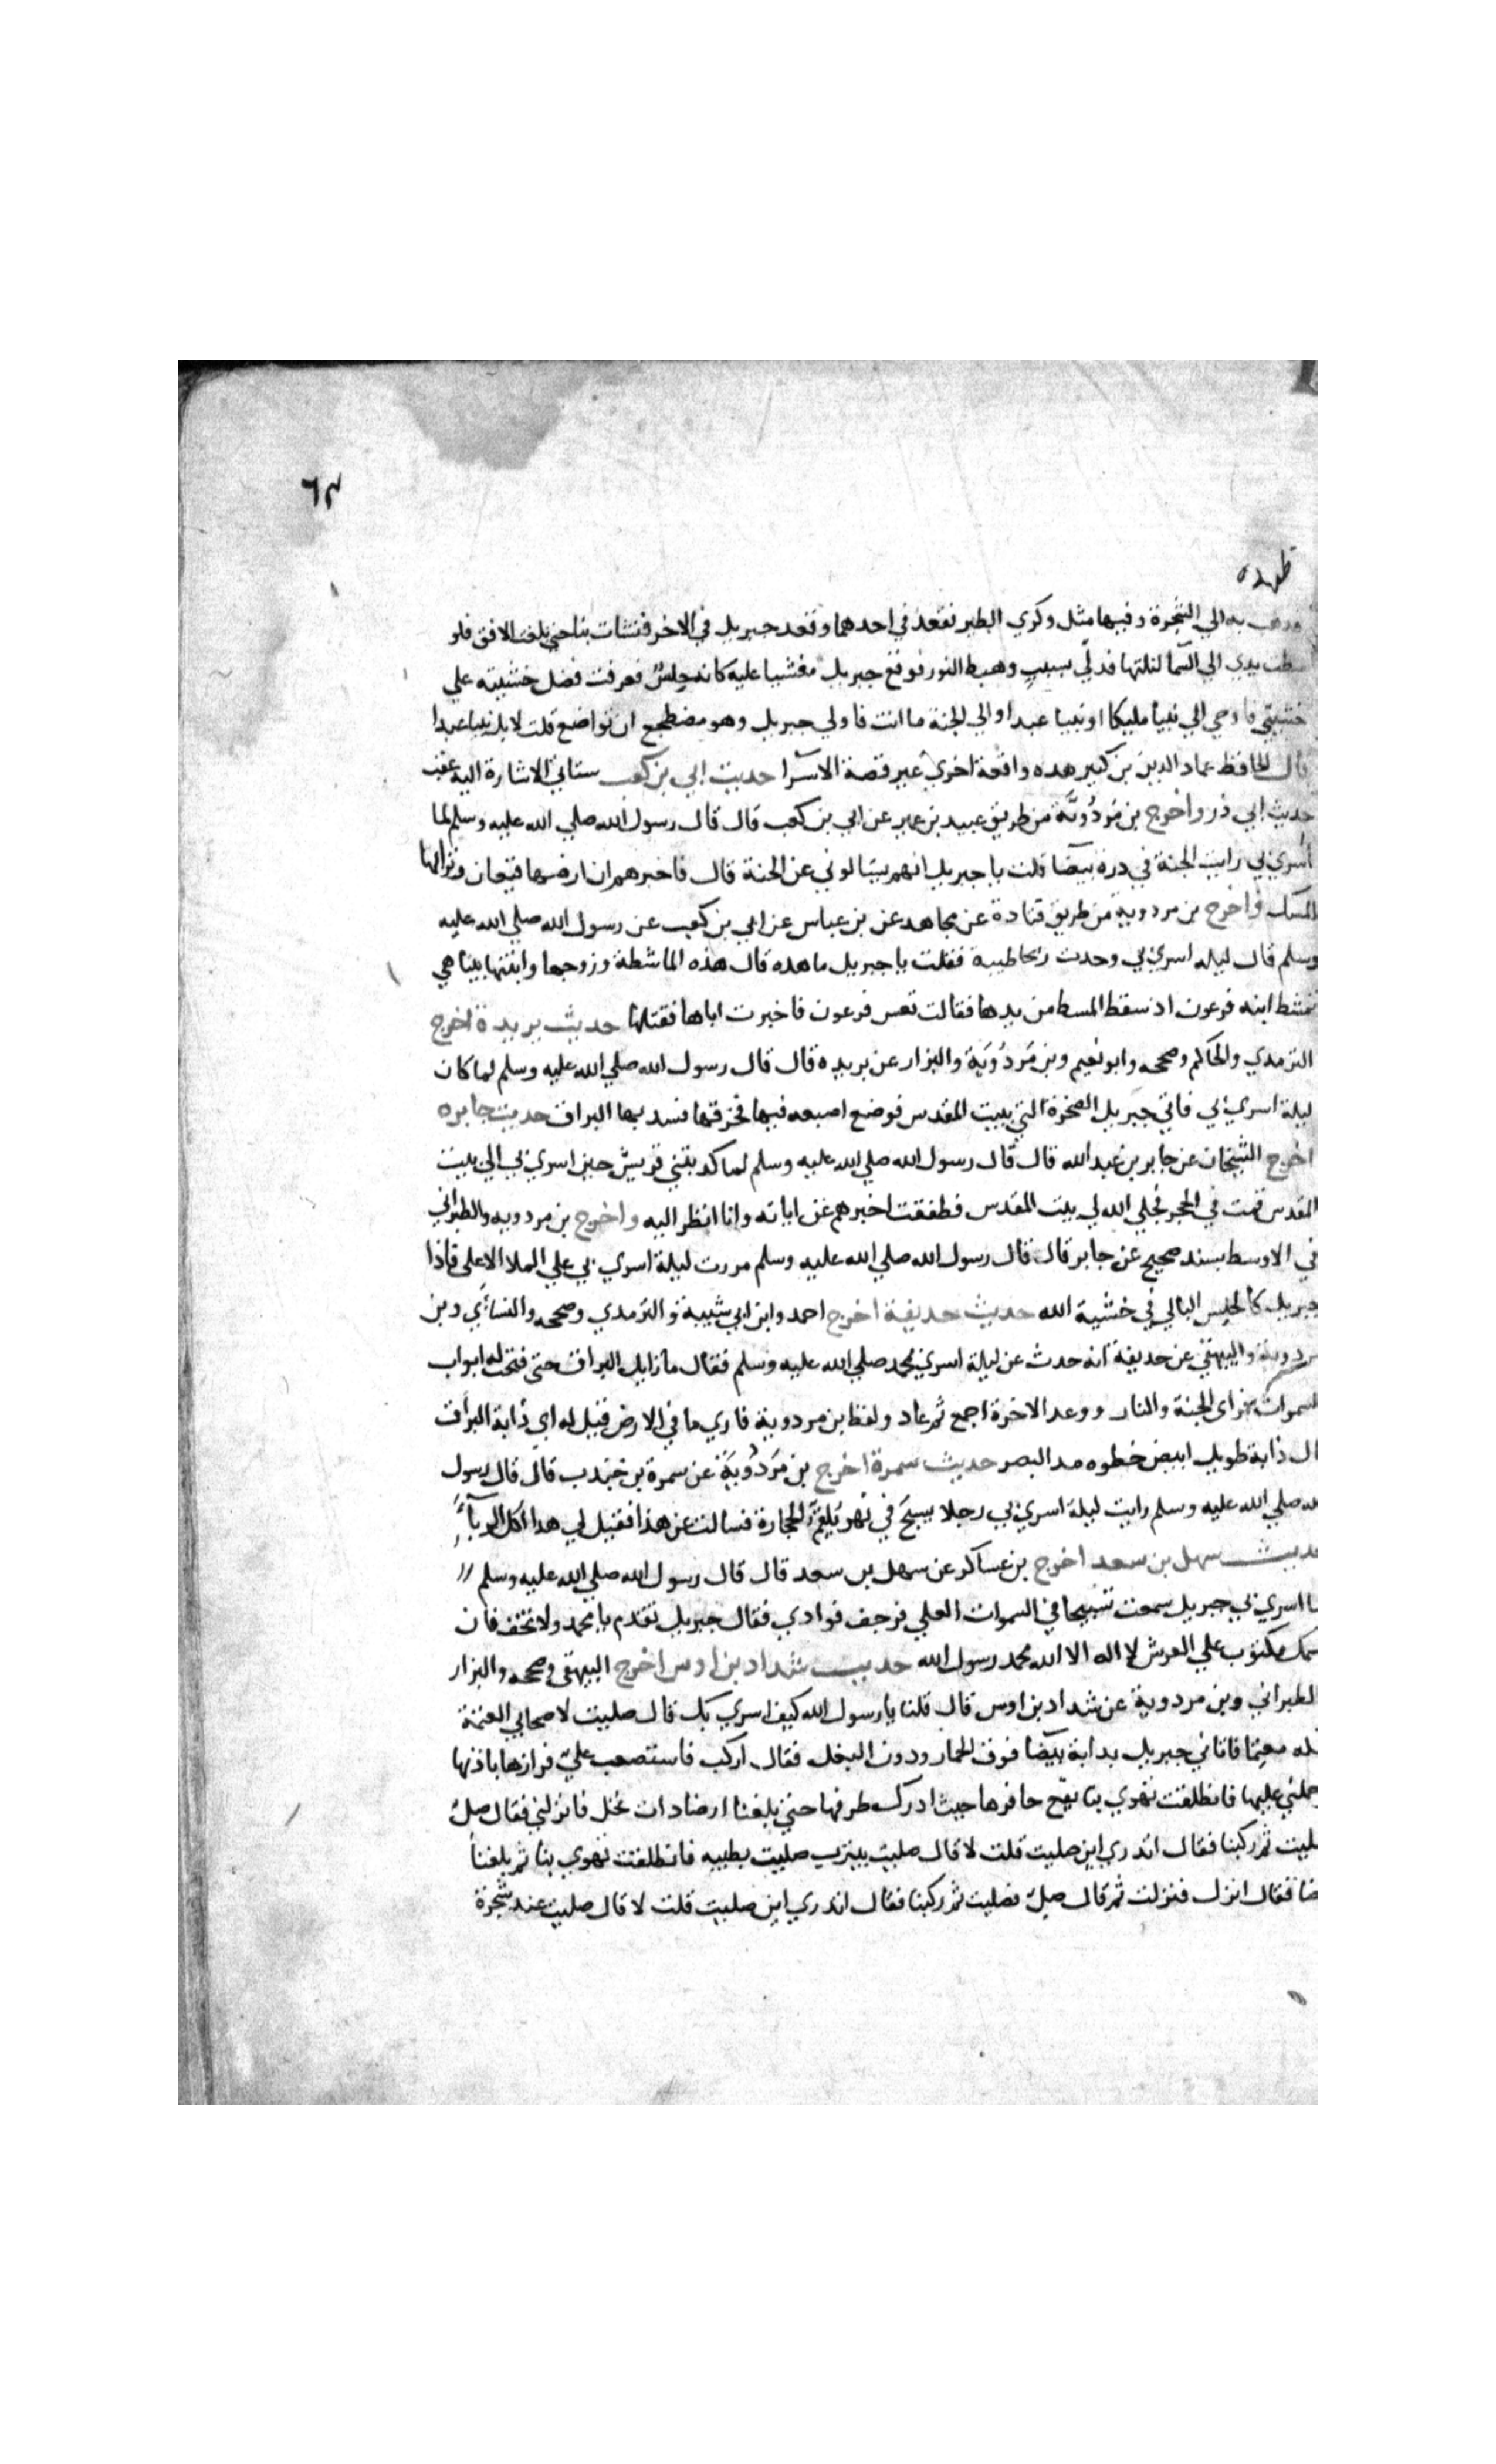 ٦٣
ظهره
وذهب به الي الشجرة وفيها مثل وكري الطير فقعد في احدهما وقعد جبريل في الاخر فنشات بنا حتي بلغت الافق فلو
بسطت يدي الي السما لنلتها فدلي بسبب وهبط النور فوقع جبريل مغشيا عليه كانه حلس فعرفت فضل خشيته علي
خشيتي فاوحي الي نبيا مليكا او نبيا عبدا والي الجنة ما انت فاولي جبريل وهو مضطجع ان تواضع قلت لا بل نبيا عبدا
قال الحافظ عماد الدين بن كثير هده واقعة اخري غير قصة الاسرا حديث ابي بن كعب ستاتي الاشارة اليه عقب
حديث ابي ذر واخرج بن مردوية من طريق عبيد بن عمير عن ابي بن كعب قال قال رسول الله صلي الله عليه وسلم لما
اسري بي رايت الجنة في درة بيضا قلت يا جبريل انهم يسالوني عن الجنة قال فاخبرهم ان ارضها قيعان وترابها
المسك واخرج بن مردوية من طريق قتادة عن مجاهد عن بن عباس عن ابي بن كعب عن رسول الله صلي الله عليه
وسلم قال ليله اسري بي وجدت ريحا طيبة فقلت يا جبريل ما هده قال هذه الماشطة وزوجها وابنتها بينا هي
تمشط ابنه فرعون اد سقط المسط من يدها فقالت تعس فرعون فاخبرت اباها فقتلها حديث بريدة اخرج
الترمدي والحاكم وصححه وابو نعيم وبن مردوية والبزار عن بريده قال قال رسول الله صلي الله عليه وسلم لما كان
ليلة اسري بي فاتي جبريل الصخرة التي ببيت المقدس فوضع اصبعه فيها فخرقها فسد بها البراق حديث جابره
اخرج الشيخان عن جابر بن عبد الله قال قال رسول الله صلي الله عليه وسلم لما كدبتني قريش حين اسري بي الي بيت
المقدس قمت في الحجر فجلي الله لي بيت المقدس فطفقت اخبرهم عن اياته وانا انظر اليه واخرج بن مردويه والطبراني
في الاوسط بسند صحيح عن جابر قال قال رسول الله صلي الله عليه وسلم مررت ليلة اسري بي علي الملا الاعلي فاذا
جبريل كالحلس البالي في خشية الله حديث حديفة اخرج احمد وابن ابي شيبة والترمدي وصححه والنسائي وبن
مردوية والبيهقي عن حديفة انه حدث عن ليلة اسري بمحمد صلي الله عليه وسلم فقال ما زايل البراق حتي فتحت له ابواب
السموات فراي الجنة والنار ووعد الاخرة اجمع ثم عاد ولفظ بن مردوية فاري ما في الارض قيل له اي دابة البراق
ال دابة طويل ابيض خطوه مد البصر حديث سمرة اخرج بن مردوية عن سمرة بن جندب قال قال رسول
لله صلي الله عليه وسلم رايت ليلة اسري بي رجلا يسبح في نهر يلقم الحجارة فسالت عن هذا فقيل لي هدا اكل الربا
ديث سهل بن سعد اخرج بن عساكر عن سهل بن سعد قال قال رسول الله صلي الله عليه وسلم //
ما اسري بي جبريل سمعت تسبيحا في السموات العلي فرجف فوادي فقال جبريل تقدم يا محمد ولا تخف فان
سمك مكتوب علي العرش لا اله الا الله محمد رسول الله حديث شداد بن اوس اخرج البيهقي وصححه والبزار
الطبراني وبن مردوية عن شداد بن اوس قال قلنا يا رسول الله كيف اسري بك قال صليت لاصحابي العتمة
بمكه معتما فاتاني جبريل بدابة بيضا فوق الحمار ودون البغل فقال اركب فاستصعب علي فرازها باذنها
حملني عليها فانطلقت تهوي بنا يقع حافرها حيث ادرك طرفها حتي بلغنا ارضا دات نخل فانزلني فقال صل
صليت ثم ركبنا فقال اتدري اين صليت قلت لا قال صليت بيترب صليت بطيبه فانطلقت تهوي بنا ثم بلغنا
ضا فقال انزل فنزلت ثم قال صل فصليت ثم ركبنا فقال اتدري اين صليت قلت لا قال صليت عند شجرة